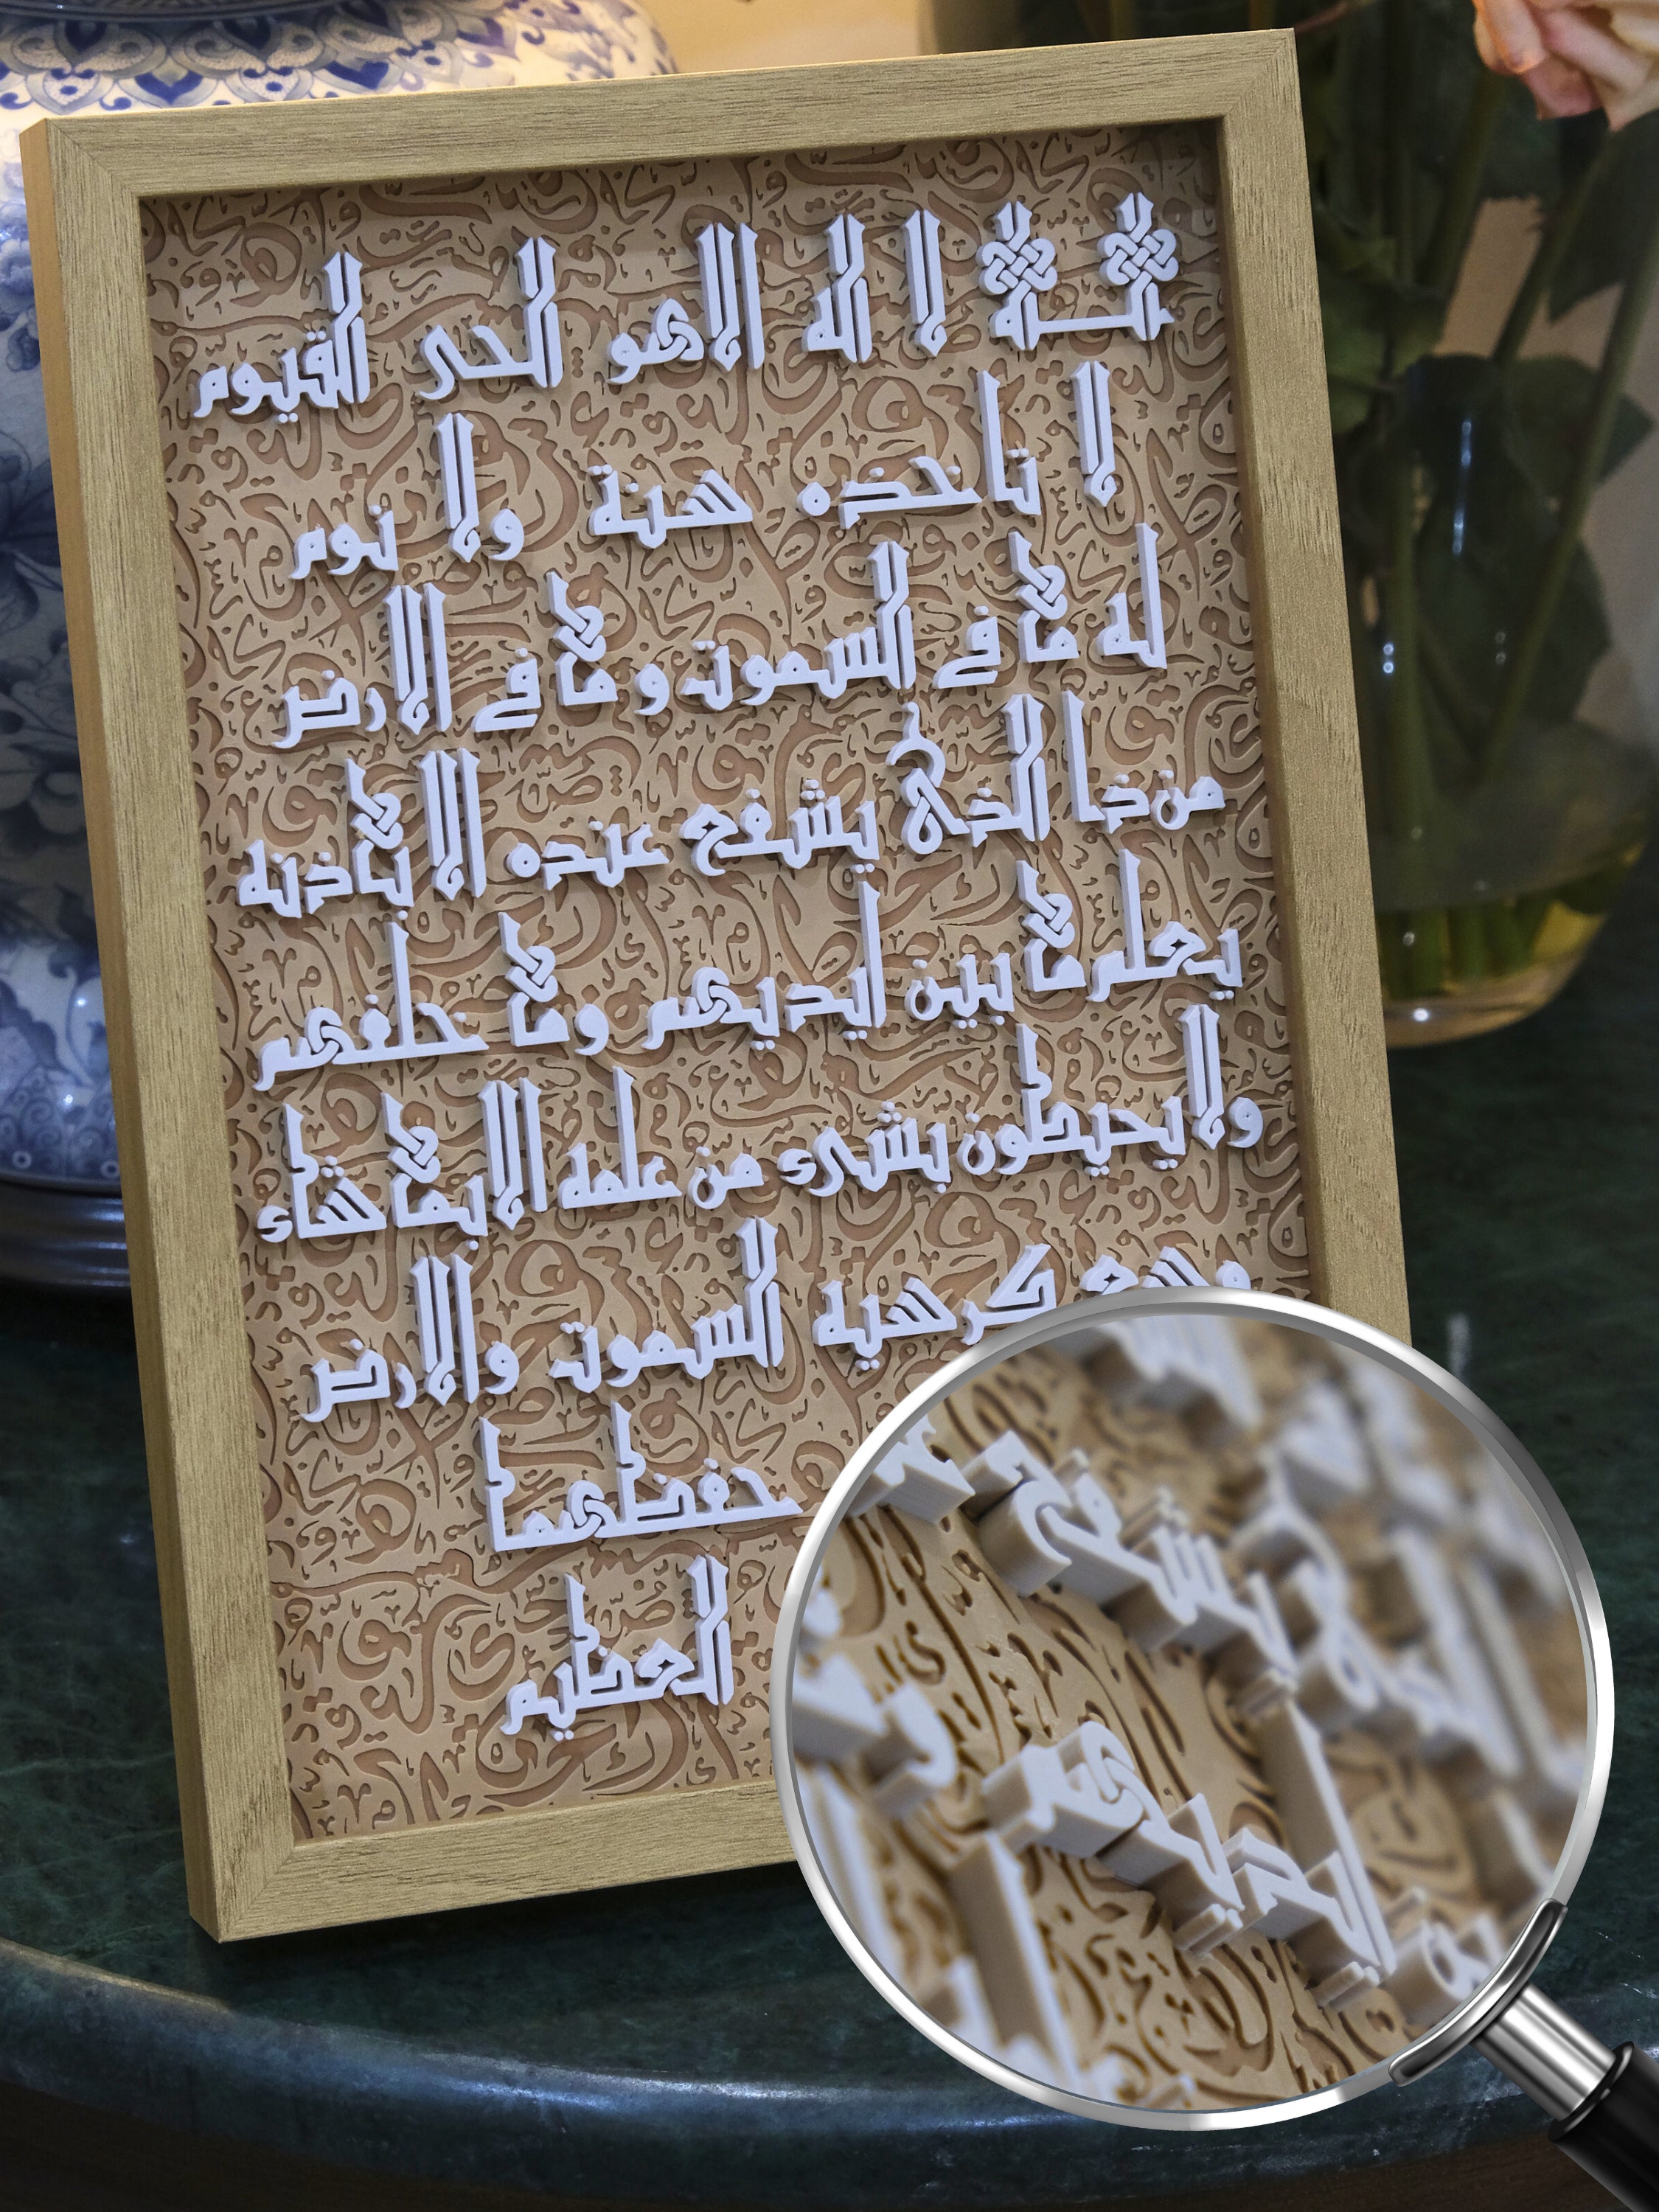 الله لا اله الا هو الحى القيوم
لا تاخذه سنة ولا نوم
له ما في السموت وما في الارض
من ذا الذى يشفع عنده الا باذنه
يعلم ما بين ايديهم وما خلفهم
ولا يحيطون بشىء من علمه الا بما شاء
وسع كرسيه السموت والارض
حفظهما
العظيم